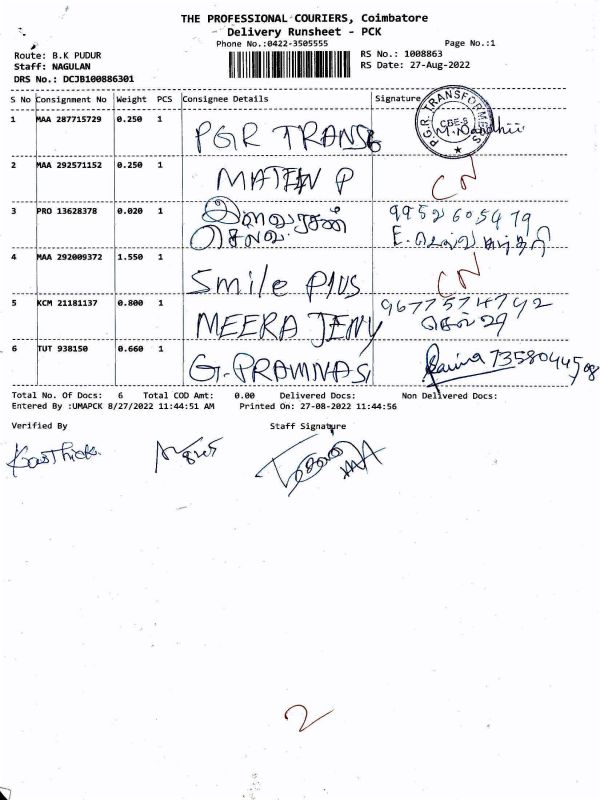 THE PROFESSIONAL COURIERS, Coimbatore
Delivery Runsheet - PCK
Phone No.:0422-3505555 Page No.:1
Route: B.K PUDUR RS No.: 1008863
Staff: NAGULAN RS Date: 27-Aug-2022
DRS No.: DCJB100886301
S No Consignment No Weight PCS Consignee Details Signature
1 MAA 287715729 0.250 1 PGR TRANS P.G.R. TRANSFORMERS CBE-5
2 MAA 292571152 0.250 1 P CN
3 PRO 13628378 0.020 1 9952605479
E.
4 MAA 292009372 1.550 1 Smile Plus CN
5 KCM 21181137 0.800 1 MEERA JENY 9677574792
6 TUT 938150 0.660 1 G. 7358044508
Total No. Of Docs: 6 Total COD Amt: 0.00 Delivered Docs: Non Delivered Docs:
Entered By :UMAPCK 8/27/2022 11:44:51 AM Printed On: 27-08-2022 11:44:56
Verified By Staff Signature
2